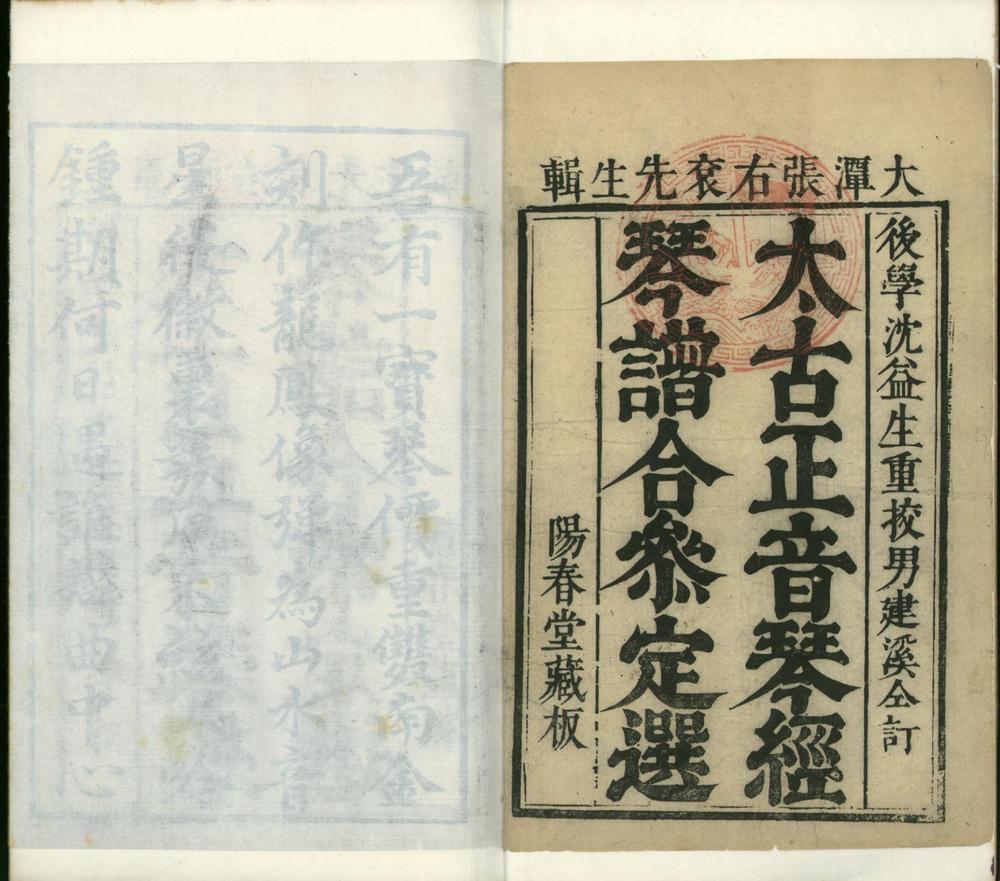 大潭張右袞先生輯
後學沈益生重挍男建溪仝訂
太古正音琴經
琴譜合參定選
陽春堂藏板
吾有一寶琴價重雙南金
刻作龍鳳像彈為山水音
星從徽裏
鍾期何日遇誰辨曲中心